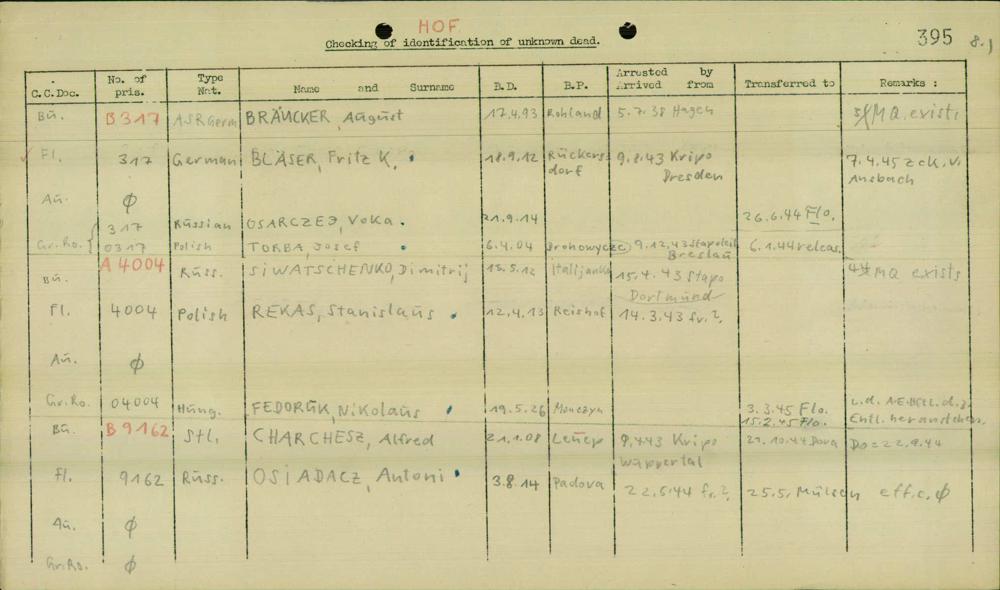 HOF
Checking of identification of unknown dead.
395 8.)
C.C.Doc. No. of pris. Type Nat. Name and Surname B.D. B.P. Arrested by Arrived from Transferred to Remarks :
Bü. B 317 ASR Germ BRÄUCKER, August 17.4.93 Rohland 5.7.38 Hagen MQ. exists
Fl. 317 German BLÄSER, Fritz K. 18.9.12 Rückers 9.8.43 Kripo 7.4.45 z ck. v.
dorf Dresden Ansbach
Au. ϕ
317 Russian OSARCZEJ, Voka. 21.9.14 26.6.44 Flo.
Gr.Ro. 0317 Polish TORBA, Josef 6.4.04 Drohowycze 9.12.43 Stapoleit 6.1.44 releas.
Breslau
A 4004
Bü. Russ. SIWATSCHENKO, Dimitrij 15.5.12 Italijanka 15.4.43 Stapo MQ exists
Dortmund
Fl. 4004 Polish REKAS, Stanislaus 12.4.13 Reishof 14.3.43 fr.?
Au. ϕ
Gr.Ro. 04004 Hung. FEDORUK, Nikolaus 19.5.26 Monczyn 3.3.45 Flo.
15.2.45 Flo. Entl. heranstehen.
Bü. B 9162 Stl. CHARCHESZ, Alfred 21.1.08 Lenep 9.4.43 Kripo 27.10.44 Dora Do = 22.9.44
Wuppertal
Fl. 9162 Russ. OSIADACZ, Antoni 3.8.14 Padova 22.5.44 fr.? 25.5. Mülsen eff.c. ϕ
Au. ϕ
Gr.Ro. ϕ